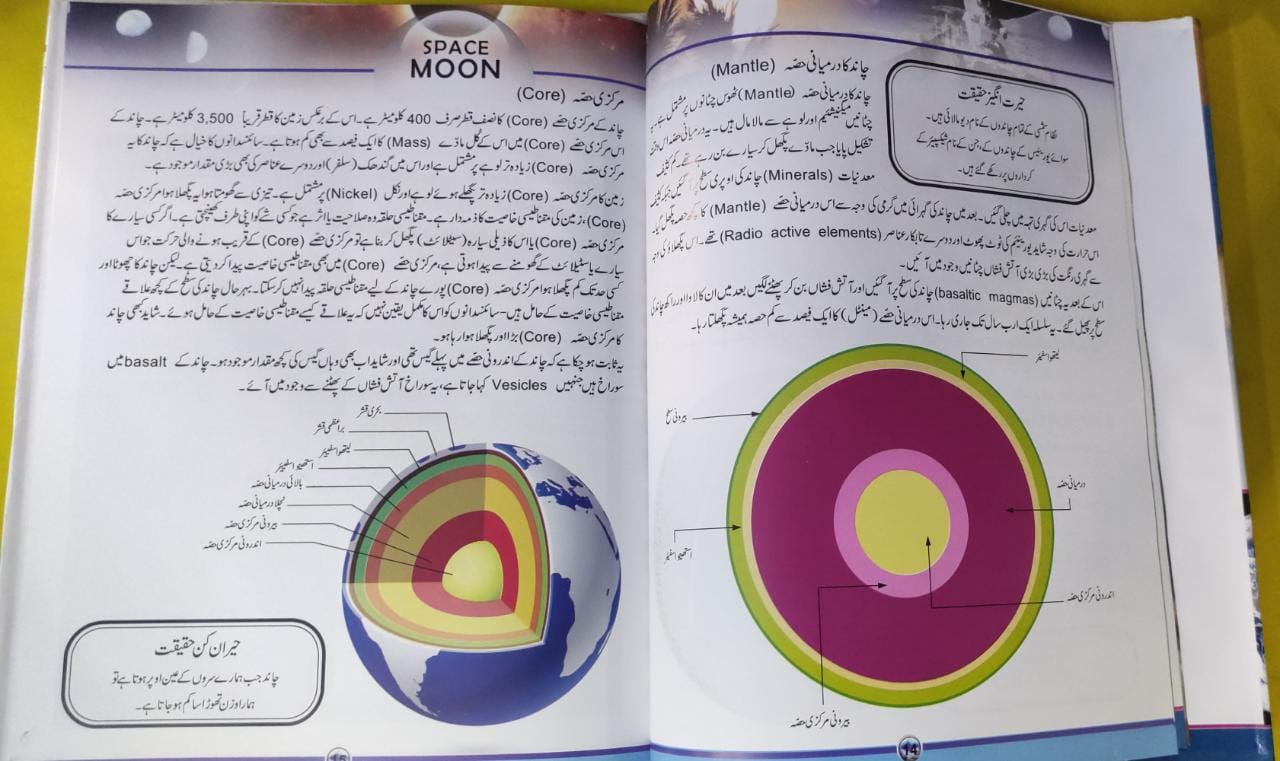 چاند کا درمیانی حصّہ (Mantle)
چاند کا درمیانی حصّہ (Mantle) ٹھوس چٹانوں پر مشتمل ہے۔ یہ
چٹانیں میگنیشیم اور لوہے سے مالا مال ہیں۔ یہ درمیانی حصّہ اس وقت
تشکیل پایا جب مادّے پگھل کر سیارے بن رہے تھے۔ کم کثیف
معدنیات (Minerals) چاند کی اوپری سطح پر آ گئیں جبکہ کثیف
حیرت انگیز حقیقت
نظامِ شمسی کے تمام چاندوں کے نام دیومالائی ہیں۔
سوائے یورینس کے چاندوں کے، جن کے نام شیکسپیئر کے
کرداروں پر رکھے گئے ہیں۔
معدنیات اس کی گہری تہہ میں چلی گئیں۔ بعد میں چاند کی گہرائی میں گرمی کی وجہ سے اس درمیانی حصّے (Mantle) کا کچھ حصہ پگھل گیا۔
اس حرارت کی وجہ شاید یورینیم کی ٹوٹ پھوٹ اور دوسرے تابکار عناصر (Radio active elements) تھے۔ اس پگھلاؤ کی وجہ
سے گہری رنگت کی بڑی بڑی آتش فشاں چٹانیں وجود میں آئیں۔
اس کے بعد یہ چٹانیں (basaltic magmas) چاند کی سطح پر آ گئیں اور آتش فشاں بن کر پھٹنے لگیں بعد میں ان کا لاوا اور راکھ چاند کی
سطح پر پھیل گئے۔ یہ سلسلہ ایک ارب سال تک جاری رہا۔ اس درمیانی حصّے (مینٹل) کا ایک فیصد سے کم حصہ ہمیشہ پگھلتا رہا۔
لیتھو اسفیئر
بیرونی سطح
درمیانی حصّہ
استھینو اسفیئر
اندرونی مرکزی حصّہ
بیرونی مرکزی حصّہ
14
SPACE
MOON
مرکزی حصّہ (Core)
چاند کے مرکزی حصّے (Core) کا نصف قطر صرف 400 کلومیٹر ہے۔ اس کے برعکس زمین کا قطر قریباً 3,500 کلومیٹر ہے۔ چاند کے
اس مرکزی حصّے (Core) میں اس کے کُل مادّے (Mass) کا ایک فیصد سے بھی کم ہوتا ہے۔ سائنسدانوں کا خیال ہے کہ چاند کا یہ
مرکزی حصّہ (Core) زیادہ تر لوہے پر مشتمل ہے اور اس میں گندھک (سلفر) اور دوسرے عناصر کی بھی بڑی مقدار موجود ہے۔
زمین کا مرکزی حصّہ (Core) زیادہ تر پگھلے ہوئے لوہے اور نکل (Nickel) پر مشتمل ہے۔ تیزی سے گھومتا ہوا یہ پگھلا ہوا مرکزی حصّہ
(Core)، زمین کی مقناطیسی خاصیت کا ذمہ دار ہے۔ مقناطیسی حلقہ وہ صلاحیت یا اثر ہے جو کسی شے کو اپنی طرف کھینچتی ہے۔ اگر کسی سیارے کا
مرکزی حصّہ (Core) یا اس کا ذیلی سیارہ (سیٹلائٹ) پگھل کر بنا ہے تو مرکزی حصّے (Core) کے قریب ہونے والی حرکت جو اس
سیارے یا سیٹیلائٹ کے گھومنے سے پیدا ہوتی ہے، مرکزی حصّے (Core) میں بھی مقناطیسی خاصیت پیدا کر دیتی ہے۔ لیکن چاند کا چھوٹا اور
کسی حد تک کم پگھلا ہوا مرکزی حصّہ (Core) پورے چاند کے لیے مقناطیسی حلقہ پیدا نہیں کر سکتا۔ بہرحال چاند کی سطح کے کچھ علاقے
مقناطیسی خاصیت کے حامل ہیں- سائنسدانوں کو اس کا مکمل یقین نہیں کہ یہ علاقے کیسے مقناطیسی خاصیت کے حامل ہوئے۔ شاید کبھی چاند
کا مرکزی حصّہ (Core) بڑا اور پگھلا ہوا رہا ہو۔
یہ ثابت ہو چکا ہے کہ چاند کے اندرونی حصّے میں پہلے گیس تھی اور شاید اب بھی وہاں گیس کی کچھ مقدار موجود ہو۔ چاند کے basalt میں
سوراخ ہیں جنہیں Vesicles کہا جاتا ہے، یہ سوراخ آتش فشاں کے پھٹنے سے وجود میں آئے۔
بحری قشر
براعظمی قشر
لیتھو اسفیئر
استھینو اسفیئر
بالائی درمیانی حصّہ
نچلا درمیانی حصّہ
بیرونی مرکزی حصّہ
اندرونی مرکزی حصّہ
حیران کن حقیقت
چاند جب ہمارے سروں کے عین اوپر ہوتا ہے تو
ہمارا وزن تھوڑا سا کم ہو جاتا ہے۔
15